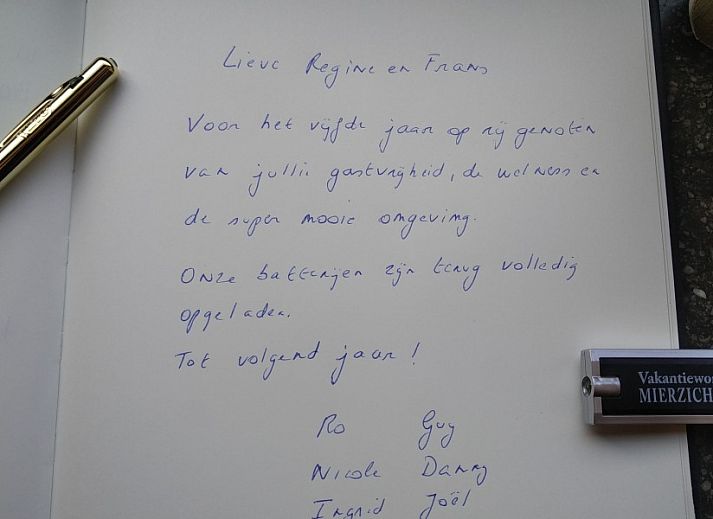 Lieve Regine en Frans
Voor het vijfde jaar op rij genoten
van jullie gastvrijheid, de welness en
de super mooie omgeving.
Onze batterijen zijn terug volledig
opgeladen.
Tot volgend jaar!
Ro Guy
Nicole Danny
Ingrid Joël
Vakantiewo
MIERZICH